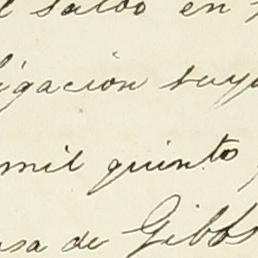 l saldo en
igación suya
mil quinto
usa de Gibbs